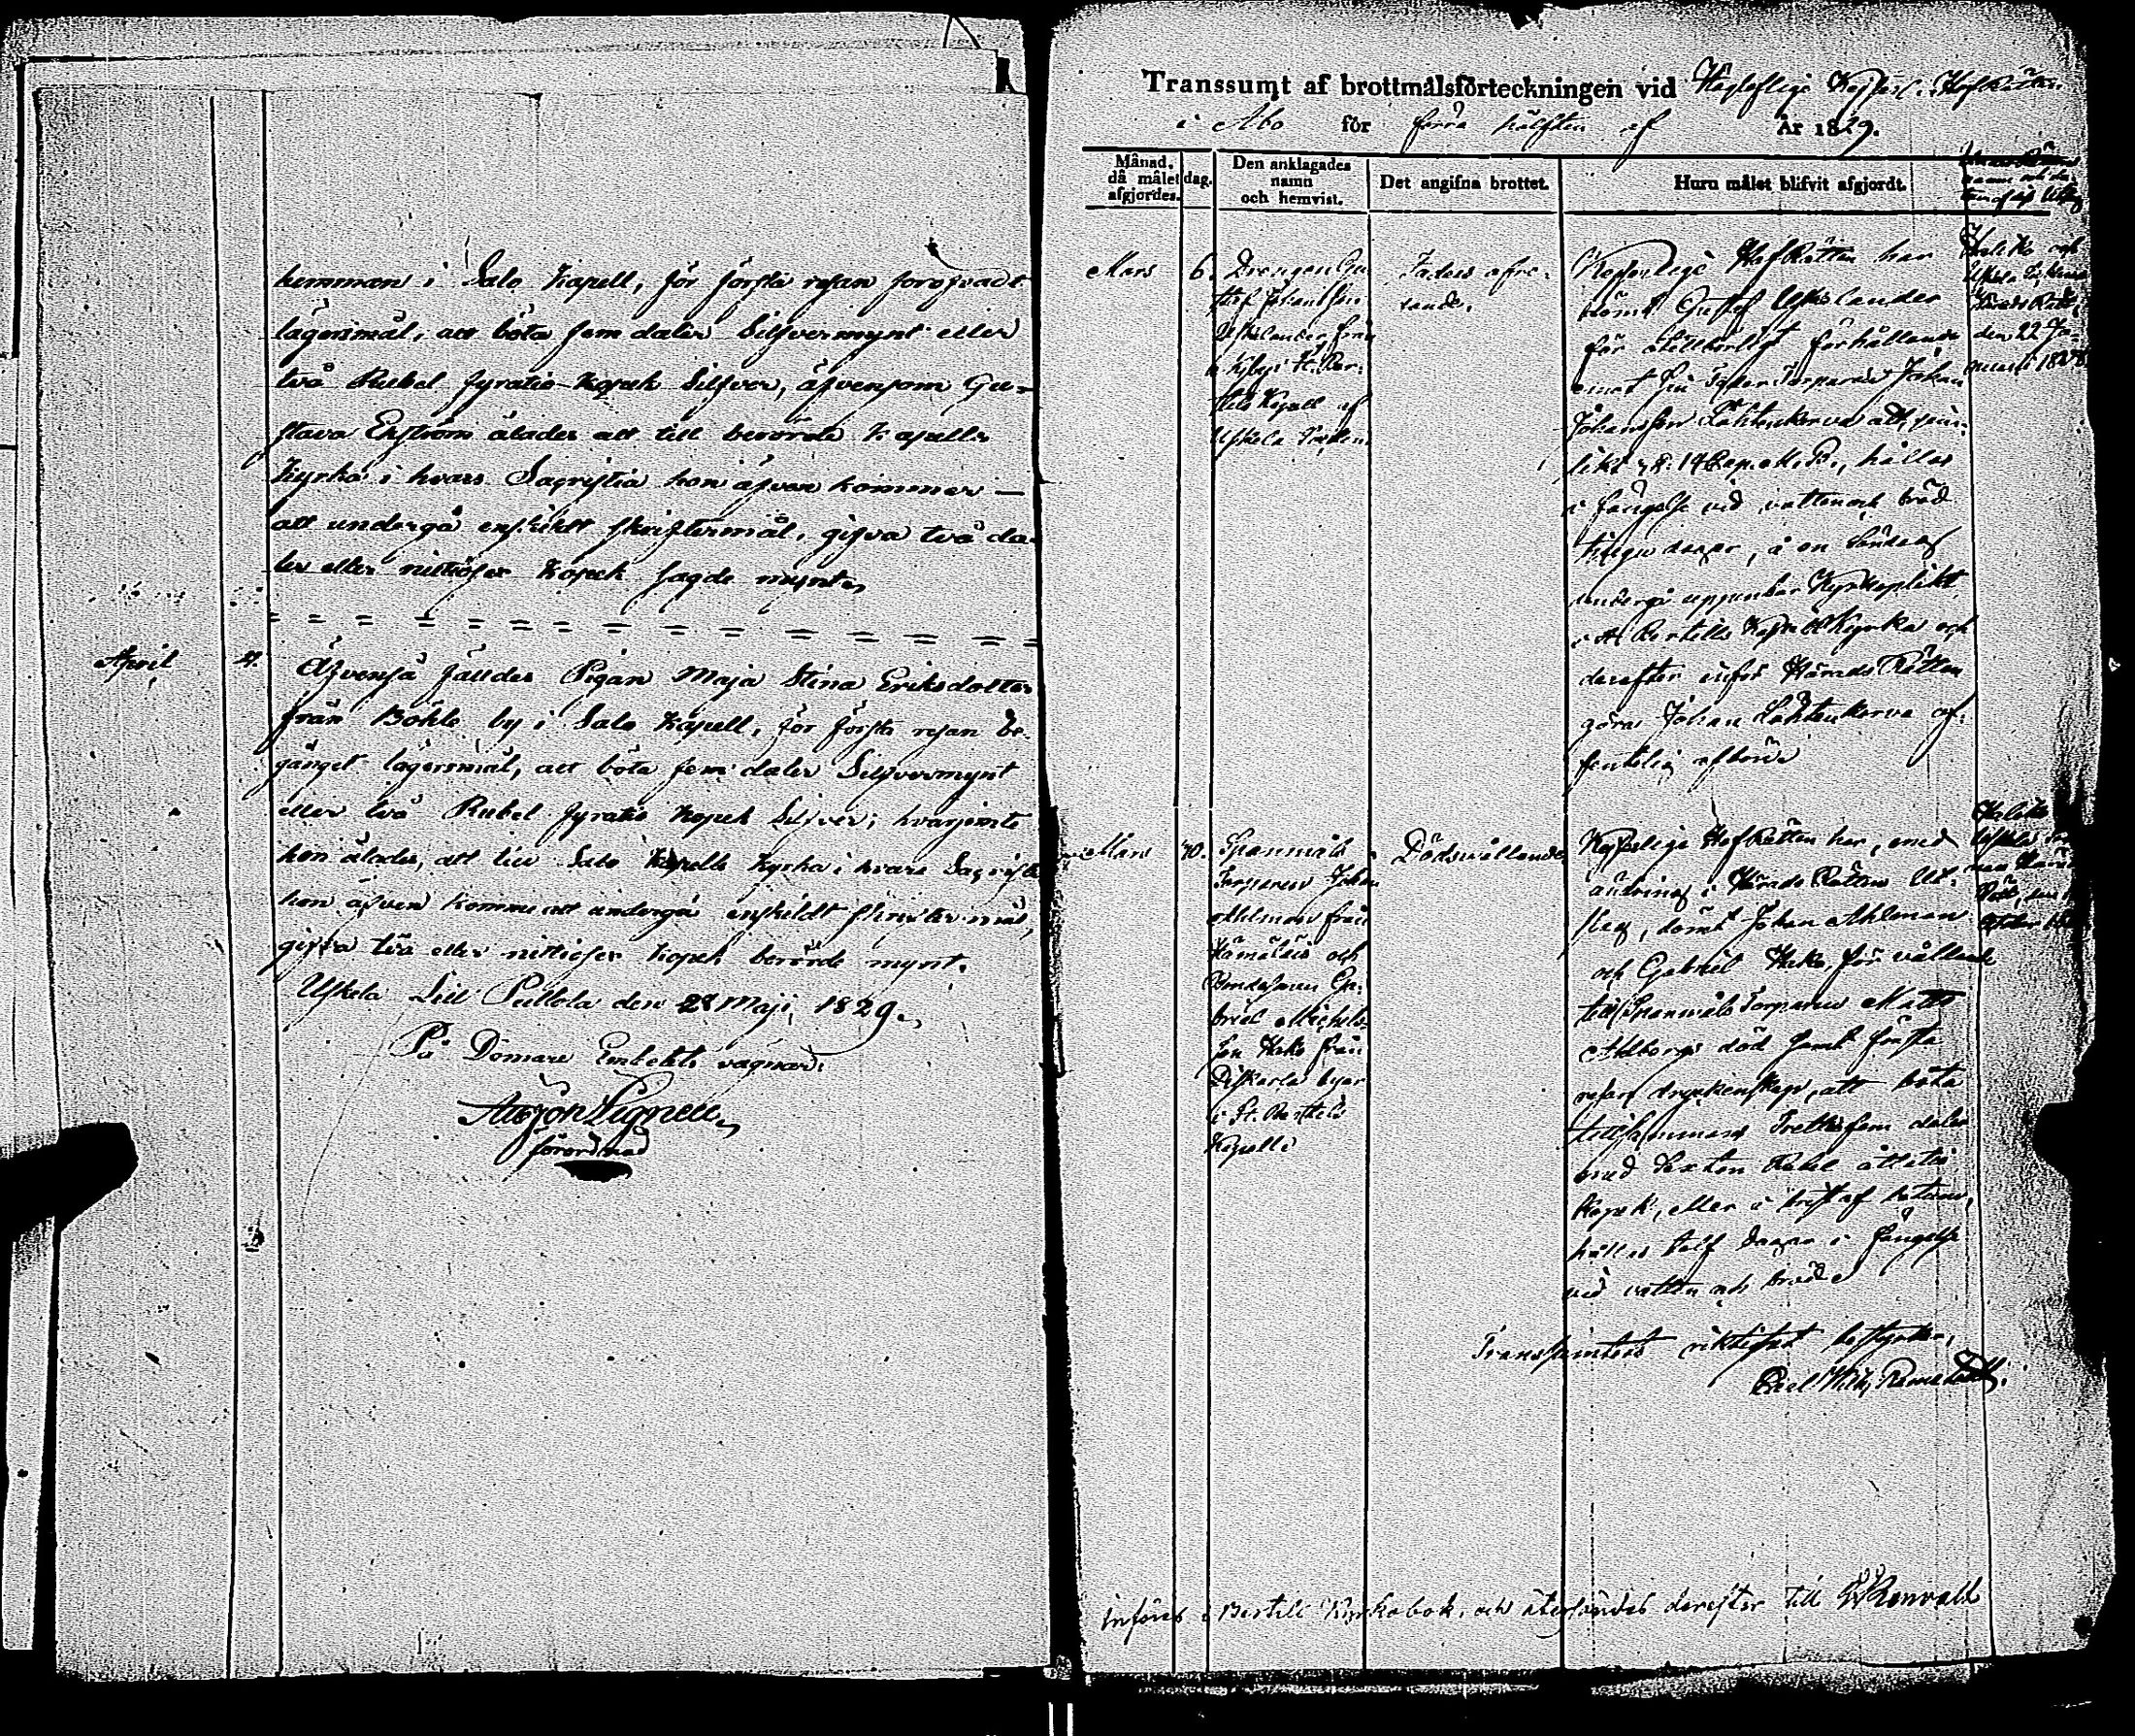 hemman i Salo Kapell, för första resan föröfvadt
lägersmål, att böta fem daler Silfvermynt eller
två Rubel fyratio Kopek Silfver, äfvensom Gu-
stava Enström ålades att till berörde Kapells
Kyrka i hvars Sacristia hon äfven kommer —
att undergå enskildt skriftermål, gifva två da-
ler eller nittiosex Kopek sagde mynt.
April 4. Äfvenså fälldes Pigan Maja Stina Eriksdotter
från Böhle by i Salo Kapell, för första resan be-
gånget lägersmål, att böta fem daler Silfvermynt
eller två Rubel fyratio Kopek Silfver; hvarjemte
hon ålades, att till Salo Kapells Kyrka i hvars Sacristia
hon äfven kommer att undergå enskildt skriftermål,
gifva två eller nittiosex Kopek berörde mynt.
Uskela Lill Pullola den 28 Maji 1829.
På Domare Embetets vägnar:
Lignell
förordnad
Transsumt af brottmålsförteckningen vid Höglofliga Kejserl. HofRätten
i Åbo för förra hälften af År 1829.
Månad, då målet afgjordes.
dag.
Den anklagades namn och hemvist.
Det angifna brottet.
Huru målet blifvit afgjordt.
Mars 6.
Drängen Gu-
staf Johansson
Uskelander från
Kyby i St. Ber-
tils Kapell af
Uskela Socken
Faders oföre-
rande.
Kejserlige HofRätten har
dömt Gustaf Uskelander
för otillbörligt förhållande
emot sin Fader Torparen Johan
Johansson Lähteenkorva att, jem-
likt 14 Cap. M. B., hållas
i fängelse vid vatten och bröd
tjugu dagar, å en Söndag
undergå uppenbar Kyrkoplikt
i St. Bertils Kapell Kyrka och
derefter inför Härads Rätten
göra Johan Lähteenkorva of-
fentelig afbön.
Haliko och
Uskela Socknars
Härads Rätt
den 22 Ja-
nuarii 1828
Mars 10.
Spanmåls
Torparen Johan
Ahlman från
Hämäläis och
Bondesonen Ga-
briel Michels-
son Hake från
byar
i St. Bertils
Kapell
Dödsvållande
Kejserlige HofRätten har, med
ändring i Härads Rättens Ut-
slag, dömt Johan Ahlman
och Gabriel Hake, för vållande
till Spanmåls Torparen Matts
Ahlbergs död samt första
resan dryckenskap, att böta
tillsammans Trettiofem daler
med Sexton Rubel åttatio
Kopek, eller i brist af botum,
hållas tolf dagar i fängelse
vid vatten och bröd
Haliko
Transsumtets riktighet bestyrker,
Införes i Bertils Kyrkobok, och återsändes derefter till Renvall